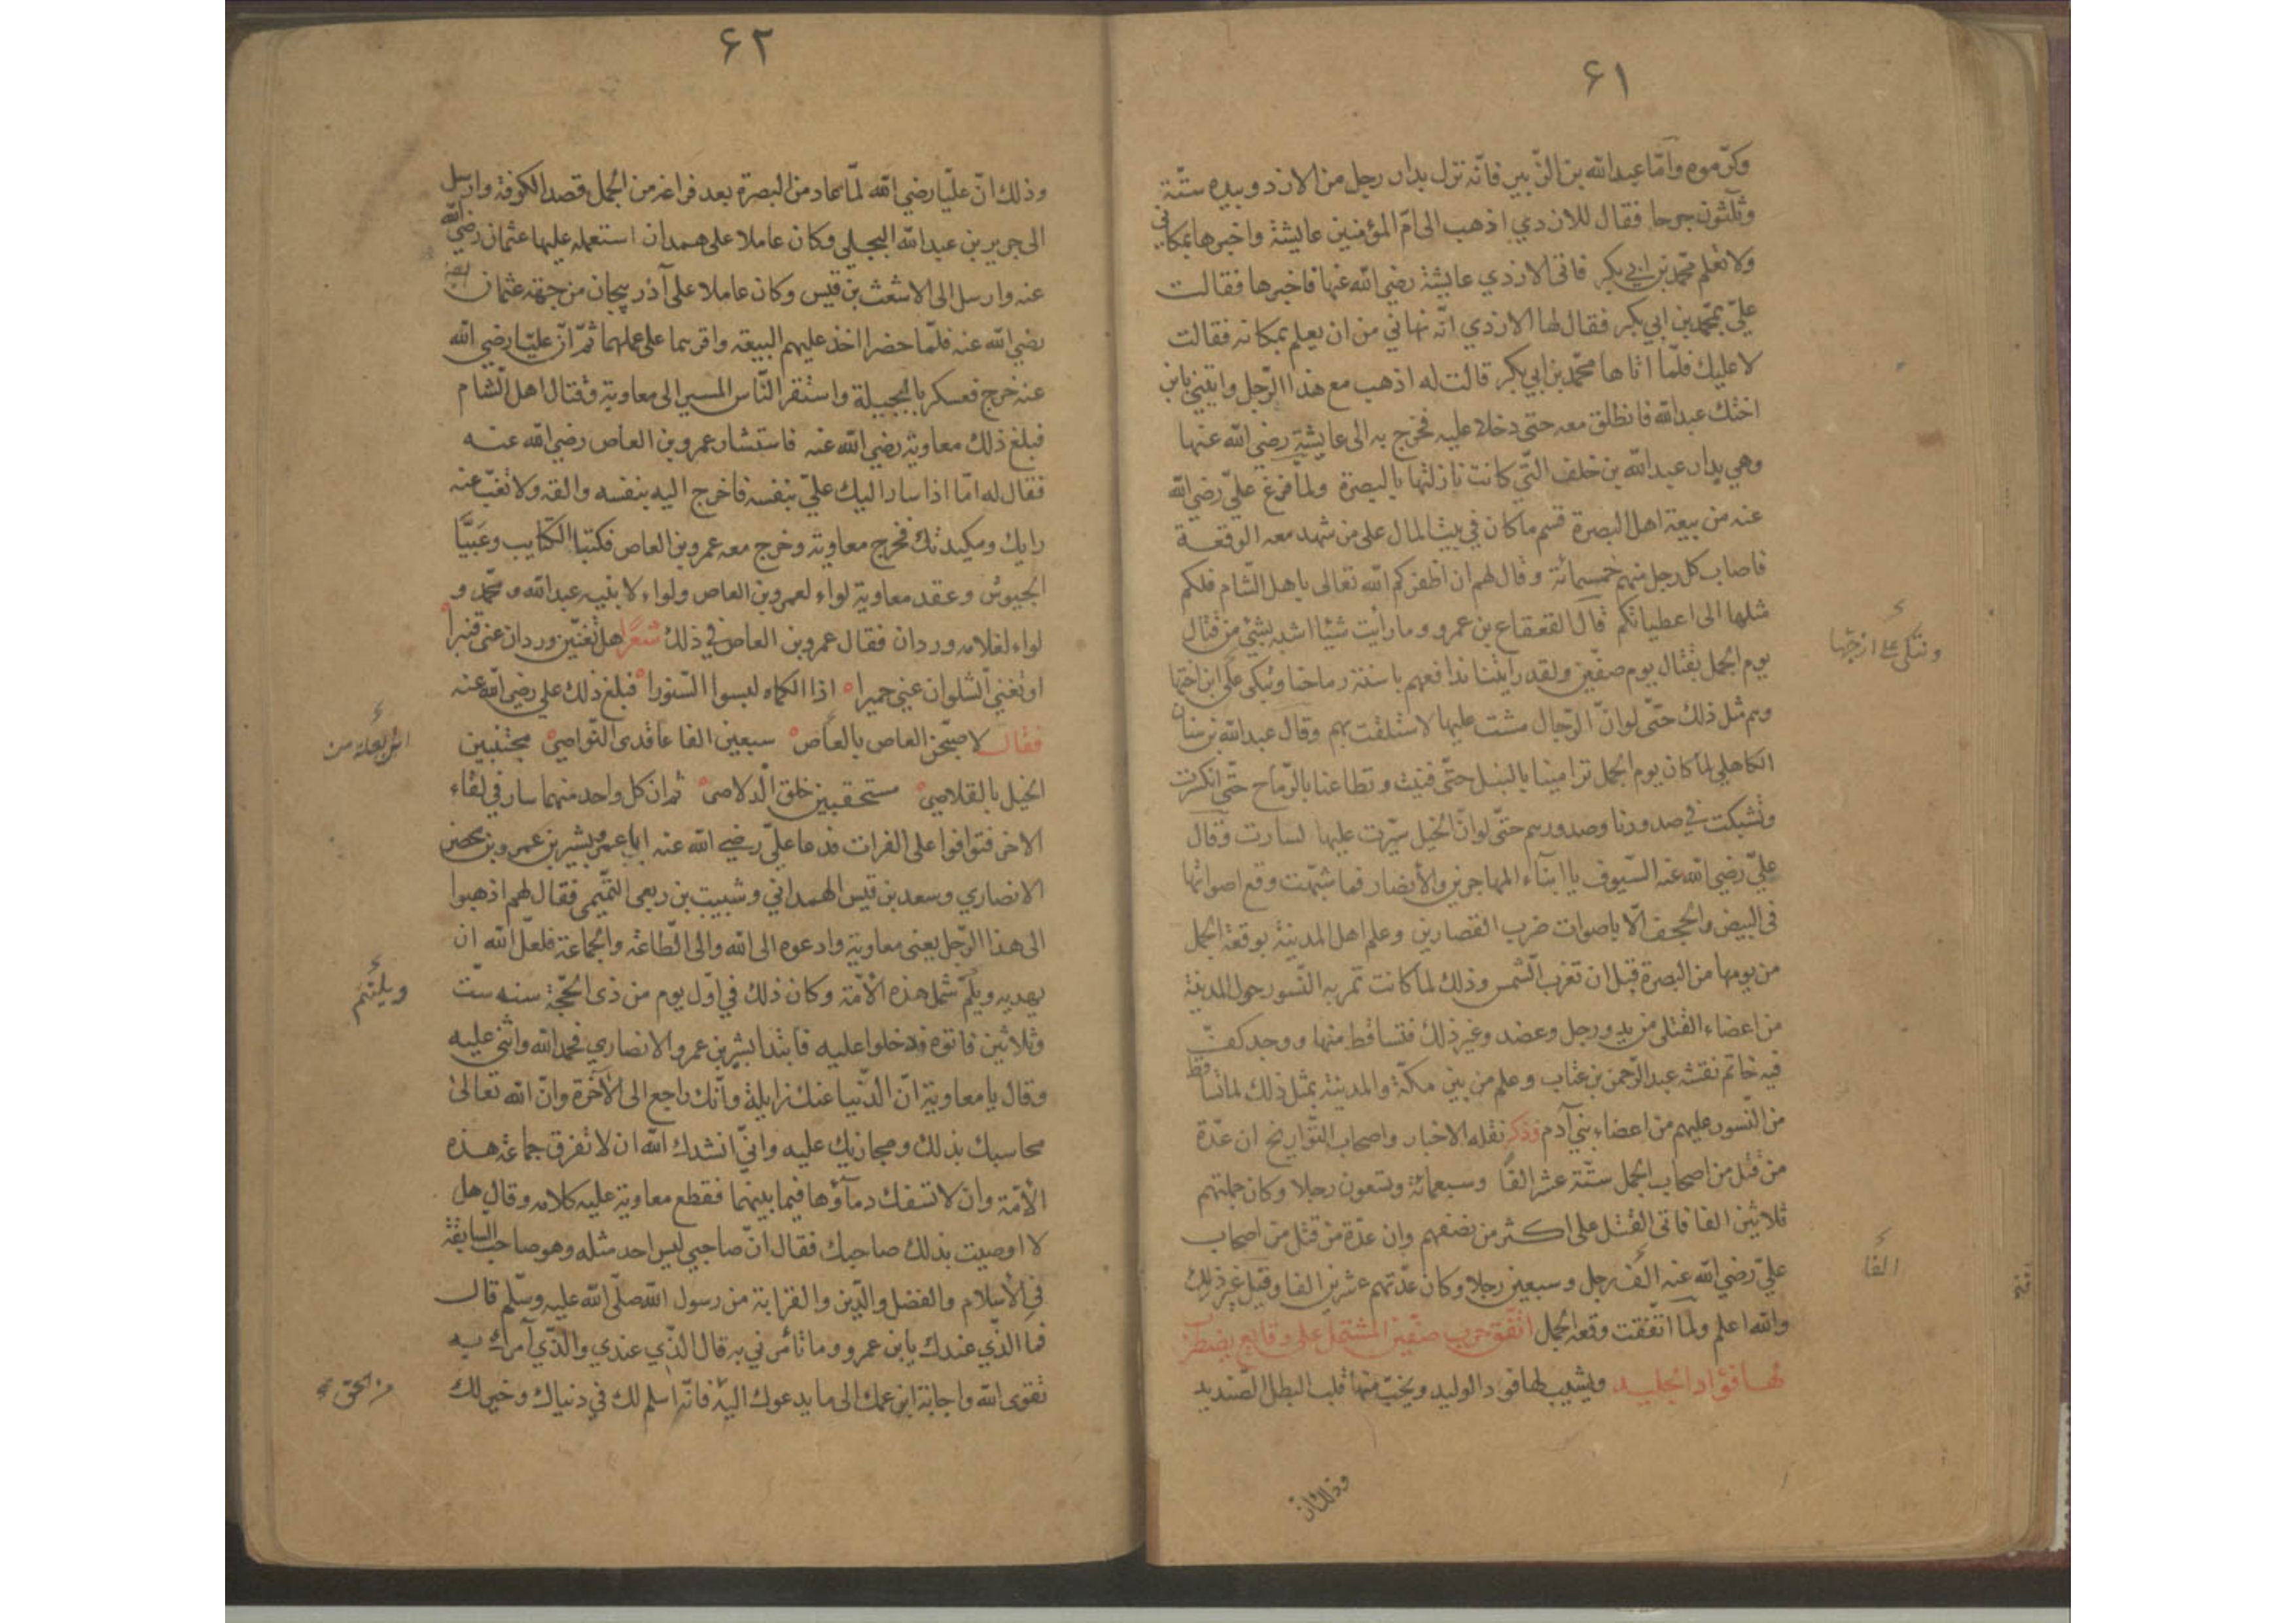 ٦١
وكرّموه وامّا عبد الله بن الزّبير فانّه نزل بدار رجل من الازد وبيده ستّة
وثلثون جرحا فقال للازدي اذهب الى امّ المؤمنين عايشة واخبرها بمكاني
ولا تعلم محمّد بن ابي بكر فاتى الازدي عايشة رضي الله عنها فاخبرها فقالت
عليّ بمحمّد بن ابي بكر فقال لها الازدي انّه نهاني من ان يعلم بمكانه فقالت
لا عليك فلمّا اتاها محمّد بن ابي بكر قالت له اذهب مع هذا الرّجل وايتيني بابن
اختك عبد الله فانطلق معه حتى دخلا عليه فخرج به الى عايشة رضي الله عنها
وهي بدار عبد الله بن خلف التّي كانت نازلتها بالبصرة ولما فرغ عليّ رضي الله
عنه من بيعة اهل البصرة قسم ما كان في بيت المال على من شهد معه الوقعة
فاصاب كل رجل منهم خمسمائة وقال لهم ان اظفركم الله تعالى باهل الشّام فلكم
مثلها الى اعطياتكم قال القعقاع بن عمرو وما رأيت شيئا اشبه بشيئ من قتال
يوم الجمل بقتال يوم صفّين ولقد رايتنا ندافعهم باسنتة رماحنا
وهم مثل ذلك حتّى لو انّ الرّجال مشت عليها لاستلقت بهم وقال عبد الله بن سنان
الكاهلي لما كان يوم الجمل ترامينا بالنبل حتّى فنيت وتطاعنا بالرّماح حتّى انكسرت
وتشبكت في صدورنا وصدورهم حتّى لو انّ الخيل سيّرت عليها لسارت وقال
عليّ رضي الله عنه السّيوف يا ابنآء المهاجرين والأنصار فما شبّهت وقع اصواتها
في البيض والحجف الّا باصوات ضرب القصارين وعلم اهل المدينة بوقعة الجمل
من يومها من البصرة قبل ان تغرب الشّمس وذلك لما كانت تمر به النّسور حول المدينة
من اعضاء القتلى من يد ورجل وعضد وغير ذلك فتساقط منها ووجد كفّ
فيه خاتم نقشه عبد الرّحمن بن عتاب وعلم من بين مكّة والمدينة بمثل ذلك لما تساقط
من النّسور عليهم من اعضاء بني آدم وذكر نقله الاخبار واصحاب التّواريخ ان عدّة
من قتل من اصحاب الجمل ستّة عشر الفًا وسبعمائة وتسعون رجلا وكان جملتهم
ثلاثين الفا فاتى القتل على اكثر من نصفهم وان عدّة من قتل من اصحاب
عليّ رضي الله عنه الف رجل وسبعين رجلا وكان عدّتهم عشرين الفا وقيل غير ذلك
والله اعلم ولمّا اتّفقت وقعه الجمل اتّفق حرب صفّين المشتمل على وقايع يضطرب
لها فؤاد الجليد ويشيب لها فود الوليد ويخبّ منها قلب البطل الصّنديد
الفا
وذلك ان
٦٢
وذلك انّ عليّا رضي الله لمّا عاد من البصرة بعد فراغه من الجمل قصد الكوفة وارسل
الى جرير بن عبد الله البجلي وكان عاملا على همدان استعمله عليها عثمان رضي الله
عنه وارسل الى الاشعث بن قيس وكان عاملا على آذربيجان من جهة عثمان
رضي الله عنه فلمّا حضرا اخذ عليهم البيعة واقرهما على عملهما ثمّ انّ عليّا رضي الله
عنه خرج فعسكر بالنجيلة واستقر النّاس المسير الى معاوية وقتال اهل الشام
فبلغ ذلك معاوية رضي الله عنه فاستشار عمرو بن العاص رضي الله عنه
فقال له امّا اذا سار اليك عليّ بنفسه فاخرج اليه بنفسه والقه ولا تغبّ عنه
رايك ومكيدتك فخرج معاوية وخرج معه عمرو بن العاص فكتبا الكتايب وعبّيا
الجيوش وعقد معاوية لواء لعمرو بن العاص ولواء لابنيه عبد الله ومحمّد و
لواء لغلامه وردان فقال عمرو بن العاص في ذلك شعرًا هل تغنّين وردان عني قنبرا
او تغني السّلوان عني حميرا اذا الكماه لبسوا السّنورا فبلغ ذلك علي رضي الله عنه
فقال لاصبّحن العاص بالعاص سبعين الفا عاقدى النّواصي مجتنبين
الخيل بالقلاص مستحقبين حلق الدلاص ثم ان كل واحد منهما سار في لقاء
الاخر فتوافوا على الفرات فدعا عليّ رضي الله عنه ابا عمرو بشير بن عمرو بن محصن
الانصاري وسعد بن قيس الهمداني وشبيب بن ربعي التّميمي فقال لهم اذهبوا
الى هذا الرّجل يعني معاوية وادعوه الى الله والى الطّاعة والجماعة فلعلّ الله ان
يهديه ويلمّ شمل هذه الأمّة وكان ذلك في اوّل يوم من ذى الحجّة سنه ستّ
وثلاثين فاتوه فدخلوا عليه فابتدا بشير بن عمرو الانصاري فحمد الله واثنى عليه
وقال يا معاوية انّ الدّنيا عنك زايلة وانّك راجع الى الآخرة وانّ الله تعالى
محاسبك بذلك ومجازيك عليه وانّي انشدك الله ان لا تفرق جماعة هذه
الأمّة وان لا تسفك دمآؤها فيما بينهما فقطع معاوية عليه كلامه وقال هل
لا اوصيت بذلك صاحبك فقال انّ صاحبي ليس احد مثله وهو صاحب السّابقة
في الأسلام والفضل والدّين والقرابة من رسول الله صلّى الله عليه وسلّم قال
فما الذّي عندك يا بن عمرو وما تأمرني به قال الذّي عندي والذّي آمرك به
تقوى الله واجابة ابن عمك الى ما يدعوك اليه فانّه اسلم لك في دنياك وخير لك
ويلتئم
من الحق